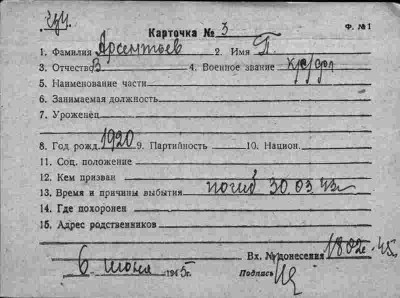 Карточка № 3 Ф. № 1
1. Фамилия Арсентьев 2. Имя П.
3. Отчество В 4. Военное звание кр/фл
5. Наименование части
6. Занимаемая должность
7. Уроженец
8. Год рожд. 1920 9. Партийность 10. Национ.
11. Соц. положение
12. Кем призван
13. Время и причины выбытия погиб 30.03.43г
14. Где похоронен
15. Адрес родственников
Вх. № донесения 1802с-45г.
6 июня 1945г. Подпись